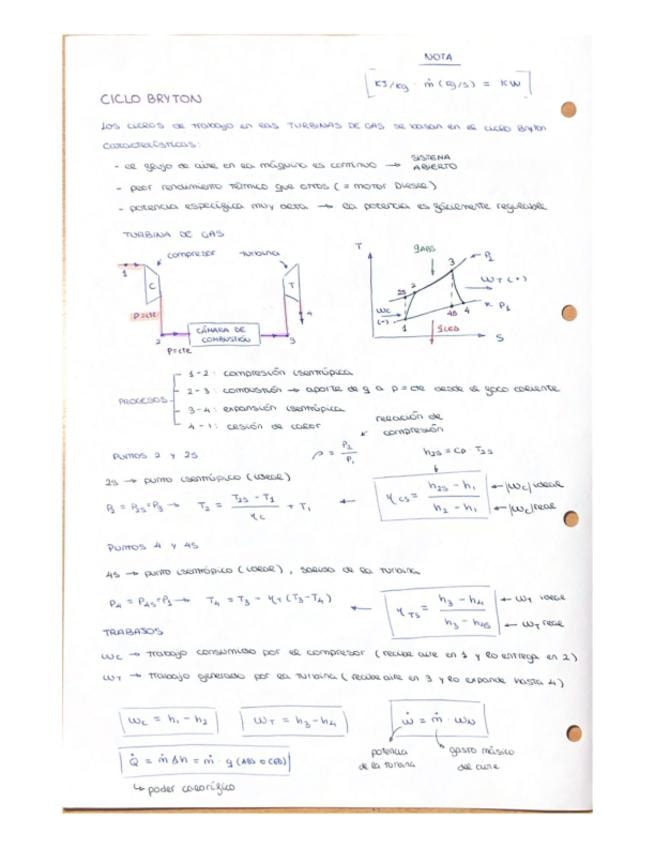 NOTA
[KJ/kg · ṁ (kg/s) = KW]
CICLO BRYTON
Los ciclos de trabajo en las TURBINAS DE GAS se basan en el ciclo Bryton
Características:
- el flujo de aire en la máquina es continuo → SISTEMA ABIERTO
- peor rendimiento térmico que otros (= motor Diesel)
- potencia específica muy alta → la potencia es fácilmente regulable
TURBINA DE GAS
compresor
turbina
1
C
T
4
P=cte
CÁMARA DE
COMBUSTIÓN
2
3
P=cte
T
qABS
3
P2
WT (+)
2S
2
WC
(-)
1
4S
4
P1
qCED
S
PROCESOS
1-2: compresión isentrópica
2-3: combustión → aporte de q a P=cte desde el foco caliente
3-4: expansión isentrópica
4-1: cesión de calor
relación de
compresión
PUNTOS 2 y 2S
ρ = P2/P1
h2s = cp T2s
2S → punto isentrópico (ideal)
P2 = P2S = P3 → T2 = (T2S - T1)/ηC + T1
ηCS = (h2S - h1)/(h2 - h1)
← |WC| ideal
← |WC| real
PUNTOS 4 y 4S
4S → punto isentrópico (ideal), salida de la turbina
P4 = P4S = P1 → T4 = T3 - ηT (T3-T4)
ηTS = (h3 - h4)/(h3 - h4S)
← WT ideal
← WT real
TRABAJOS
WC → trabajo consumido por el compresor (recibe aire en 1 y lo entrega en 2)
WT → trabajo generado por la turbina (recibe aire en 3 y lo expande hasta 4)
WC = h1 - h2
WT = h3 - h4
Ẇ = ṁ · WN
potencia
de la turbina
gasto másico
del aire
Q̇ = ṁ Δh = ṁ · q (ABS o CED)
↳ poder calorífico